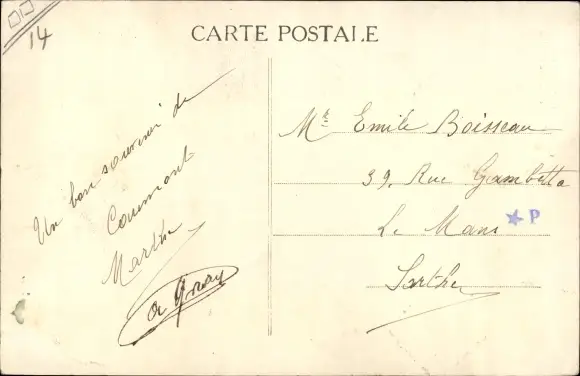 14
CARTE POSTALE
Un bon souvenir de
Marthe
Mr Emile Boisseau
39, Rue Gambetta
Le Mans
★ P
Sarthe